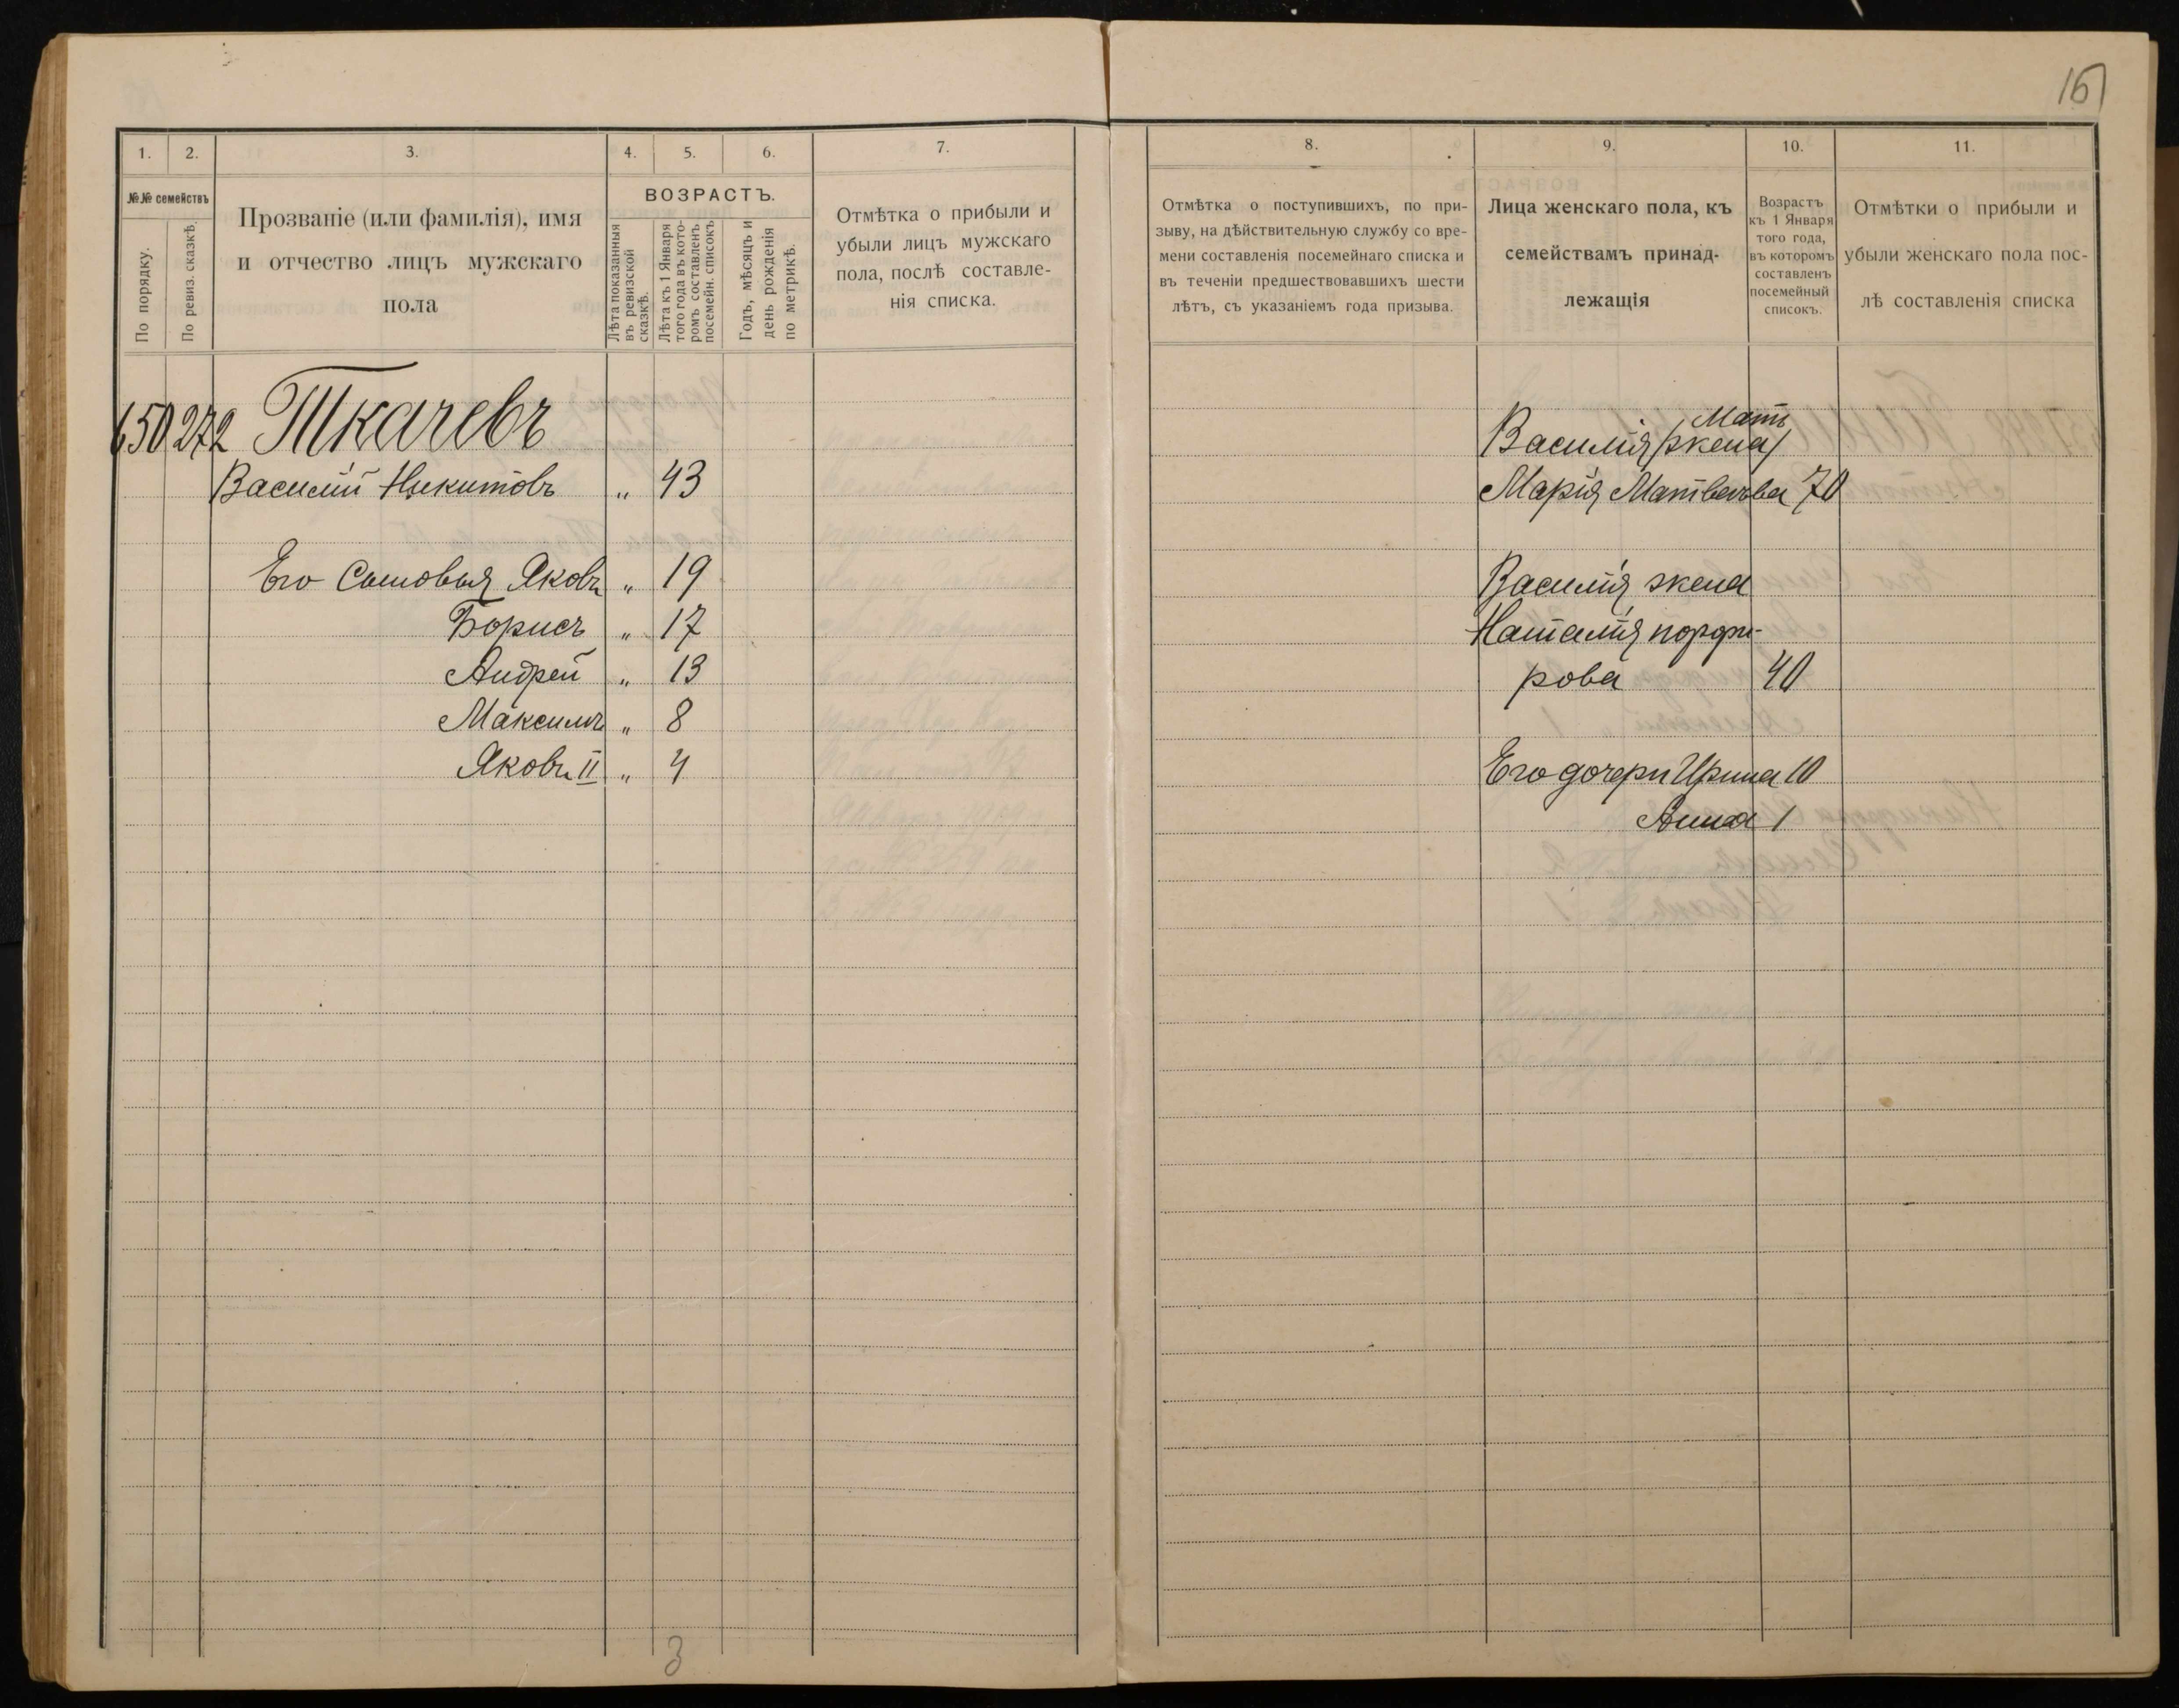 16
1.
2.
3.
4.
5.
6.
7.
№№ семействъ
По порядку.
По ревиз. сказкѣ.
Прозваніе (или фамилія), имя
и отчество лицъ мужскаго
пола
ВОЗРАСТЪ.
Лѣта показанныя
въ ревизской
сказкѣ.
Лѣта къ 1 Января
того года въ кото-
ромъ составленъ
посемейн. списокъ
Годъ, мѣсяцъ и
день рожденія
по метрикѣ.
Отмѣтка о прибыли и
убыли лицъ мужскаго
пола, послѣ составле-
нія списка.
650 272 Ткачевъ
Василій Никитовъ „ 43
Его Сыновья Яковъ „ 19
Борисъ „ 17
Андрей „ 13
Максимъ „ 8
Яковъ II „ 4
3
8.
9.
10.
11.
Отмѣтка о поступившихъ, по при-
зыву, на дѣйствительную службу со вре-
мени составленія посемейнаго списка и
въ теченіи предшествовавшихъ шести
лѣтъ, съ указаніемъ года призыва.
Лица женскаго пола, къ
семействамъ принад-
лежащія
Возрастъ
къ 1 Января
того года,
въ которомъ
составленъ
посемейный
списокъ.
Отмѣтки о прибыли и
убыли женскаго пола пос-
лѣ составленія списка
Мать
Василія /жена/
Марія Матвеева 70
Василія жена
Наталія порфи-
рова 40
Его дочери Ирина 10
Анна 1